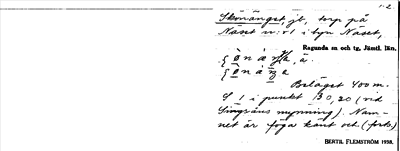 1-2
Skönänget, jb, torp på
Näset nr: 1 i byn Näset,
Ragunda sn och tg, Jämtl. län.
Beläget 400 m.
S 1 i punkt 30,20 (vid
Singsåns mynning). Nam-
net är föga känt och (forts.)
BERTIL FLEMSTRÖM 1938.